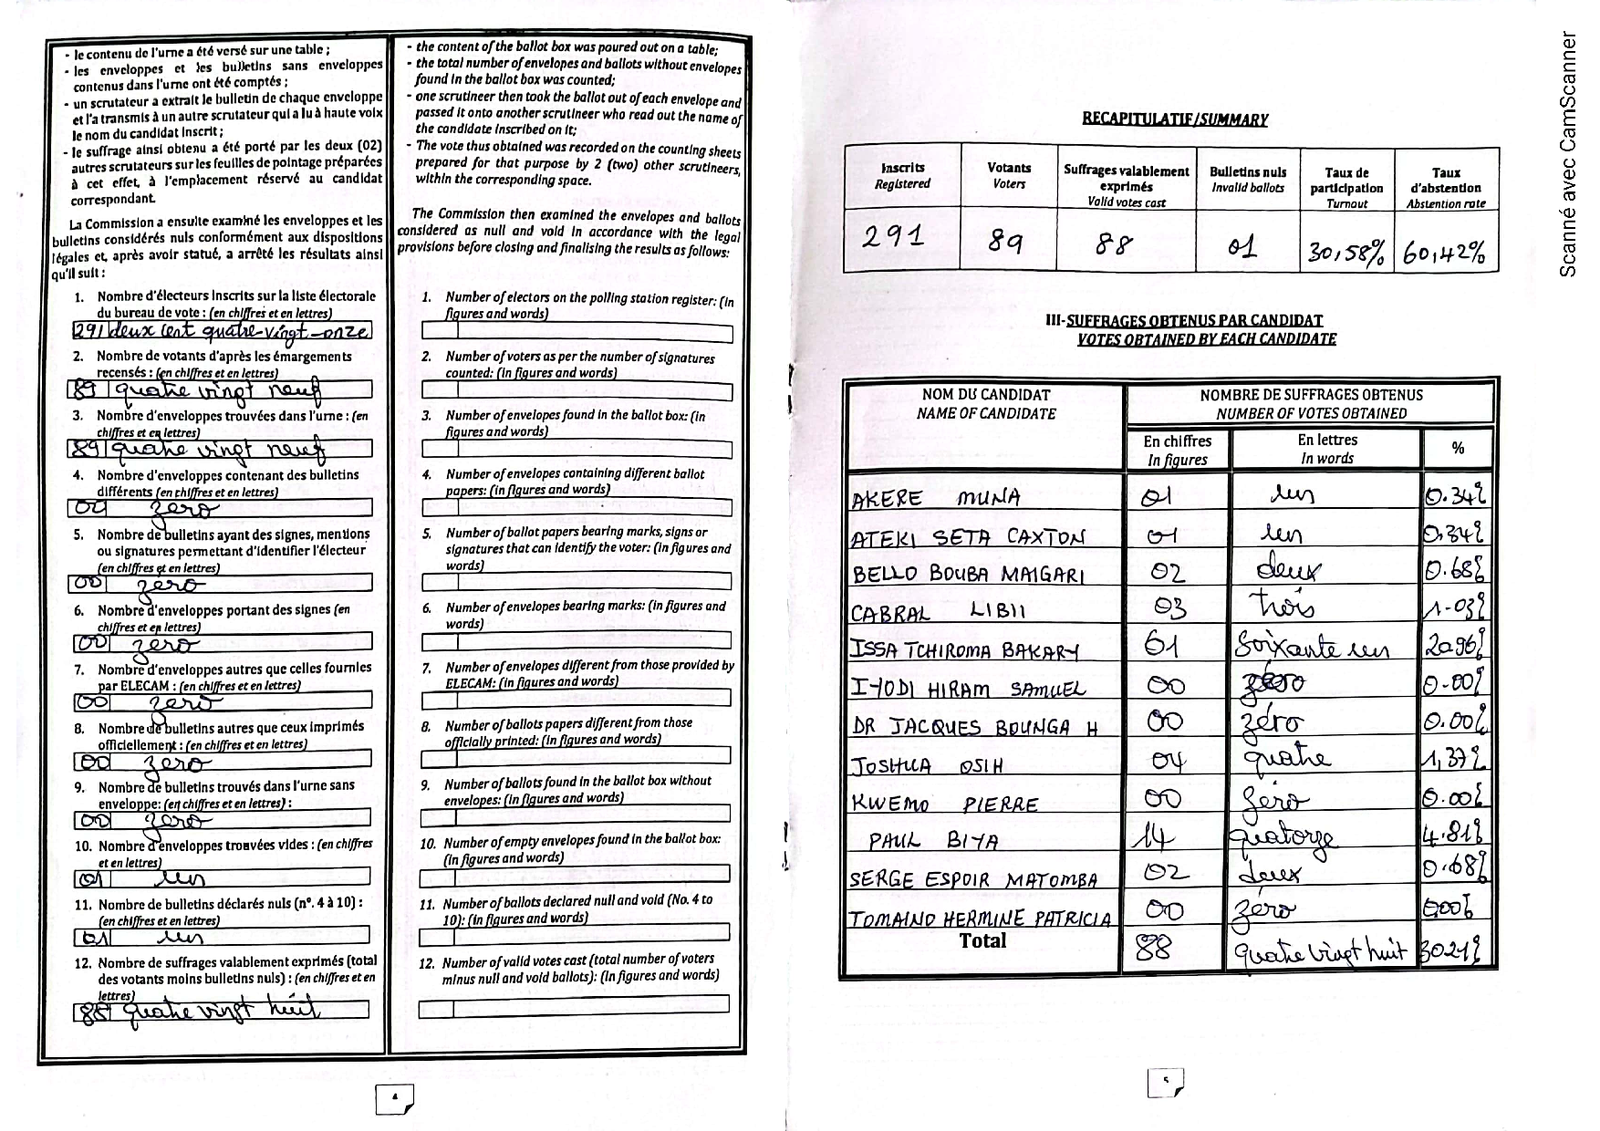 - le contenu de l'urne a été versé sur une table ;
- les enveloppes et les bulletins sans enveloppes
contenus dans l'urne ont été comptés ;
- un scrutateur a extrait le bulletin de chaque enveloppe
et l'a transmis à un autre scrutateur qui a lu à haute voix
le nom du candidat inscrit ;
- le suffrage ainsi obtenu a été porté par les deux (02)
autres scrutateurs sur les feuilles de pointage préparées
à cet effet, à l'emplacement réservé au candidat
correspondant.
La Commission a ensuite examiné les enveloppes et les
bulletins considérés nuls conformément aux dispositions
légales et, après avoir statué, a arrêté les résultats ainsi
qu'il suit :
1. Nombre d'électeurs inscrits sur la liste électorale
du bureau de vote : (en chiffres et en lettres)
291 deux cent quatre-vingt-onze
2. Nombre de votants d'après les émargements
recensés : (en chiffres et en lettres)
89 quatre vingt neuf
3. Nombre d'enveloppes trouvées dans l'urne : (en
chiffres et en lettres)
89 quatre vingt neuf
4. Nombre d'enveloppes contenant des bulletins
différents (en chiffres et en lettres)
00 zero
5. Nombre de bulletins ayant des signes, mentions
ou signatures permettant d'identifier l'électeur
(en chiffres et en lettres)
00 zero
6. Nombre d'enveloppes portant des signes (en
chiffres et en lettres)
00 zero
7. Nombre d'enveloppes autres que celles fournies
par ELECAM : (en chiffres et en lettres)
00 zero
8. Nombre de bulletins autres que ceux imprimés
officiellement : (en chiffres et en lettres)
00 zero
9. Nombre de bulletins trouvés dans l'urne sans
enveloppe: (en chiffres et en lettres) :
00 zero
10. Nombre d'enveloppes trouvées vides : (en chiffres
et en lettres)
01 un
11. Nombre de bulletins déclarés nuls (n°. 4 à 10) :
(en chiffres et en lettres)
01 un
12. Nombre de suffrages valablement exprimés (total
des votants moins bulletins nuls) : (en chiffres et en
lettres)
88 quatre vingt huit
- the content of the ballot box was poured out on a table;
- the total number of envelopes and ballots without envelopes
found in the ballot box was counted;
- one scrutineer then took the ballot out of each envelope and
passed it onto another scrutineer who read out the name of
the candidate inscribed on it;
- The vote thus obtained was recorded on the counting sheets
prepared for that purpose by 2 (two) other scrutineers,
within the corresponding space.
The Commission then examined the envelopes and ballots
considered as null and void in accordance with the legal
provisions before closing and finalising the results as follows:
1. Number of electors on the polling station register: (in
figures and words)
2. Number of voters as per the number of signatures
counted: (in figures and words)
3. Number of envelopes found in the ballot box: (in
figures and words)
4. Number of envelopes containing different ballot
papers: (in figures and words)
5. Number of ballot papers bearing marks, signs or
signatures that can identify the voter: (in figures and
words)
6. Number of envelopes bearing marks: (in figures and
words)
7. Number of envelopes different from those provided by
ELECAM: (in figures and words)
8. Number of ballots papers different from those
officially printed: (in figures and words)
9. Number of ballots found in the ballot box without
envelopes: (in figures and words)
10. Number of empty envelopes found in the ballot box:
(in figures and words)
11. Number of ballots declared null and void (No. 4 to
10): (in figures and words)
12. Number of valid votes cast (total number of voters
minus null and void ballots): (in figures and words)
4
RECAPITULATIF/SUMMARY
Inscrits Registered | Votants Voters | Suffrages valablement exprimés Valid votes cast | Bulletins nuls Invalid ballots | Taux de participation Turnout | Taux d'abstention Abstention rate
291 89 88 01 30,58% 60,42%
III-SUFFRAGES OBTENUS PAR CANDIDAT
VOTES OBTAINED BY EACH CANDIDATE
NOM DU CANDIDAT NOMBRE DE SUFFRAGES OBTENUS
NAME OF CANDIDATE NUMBER OF VOTES OBTAINED
En chiffres En lettres %
In figures In words
AKERE MUNA 01 un 0.34%
ATEKI SETA CAXTON 01 un 0,34%
BELLO BOUBA MAIGARI 02 deux 0.68%
CABRAL LIBII 03 trois 1.03%
ISSA TCHIROMA BAKARY 61 Soixante un 20.96%
IYODI HIRAM SAMUEL 00 zéro 0.00%
DR JACQUES BOUNGA H 00 zéro 0.00%
JOSHUA OSIH 04 quatre 1,37%
KWEMO PIERRE 00 zéro 0.00%
PAUL BIYA 14 quatorze 4.81%
SERGE ESPOIR MATOMBA 02 deux 0.68%
TOMAINO HERMINE PATRICIA 00 zéro 0,00%
Total 88 quatre vingt huit 30.21%
5
Scanné avec CamScanner